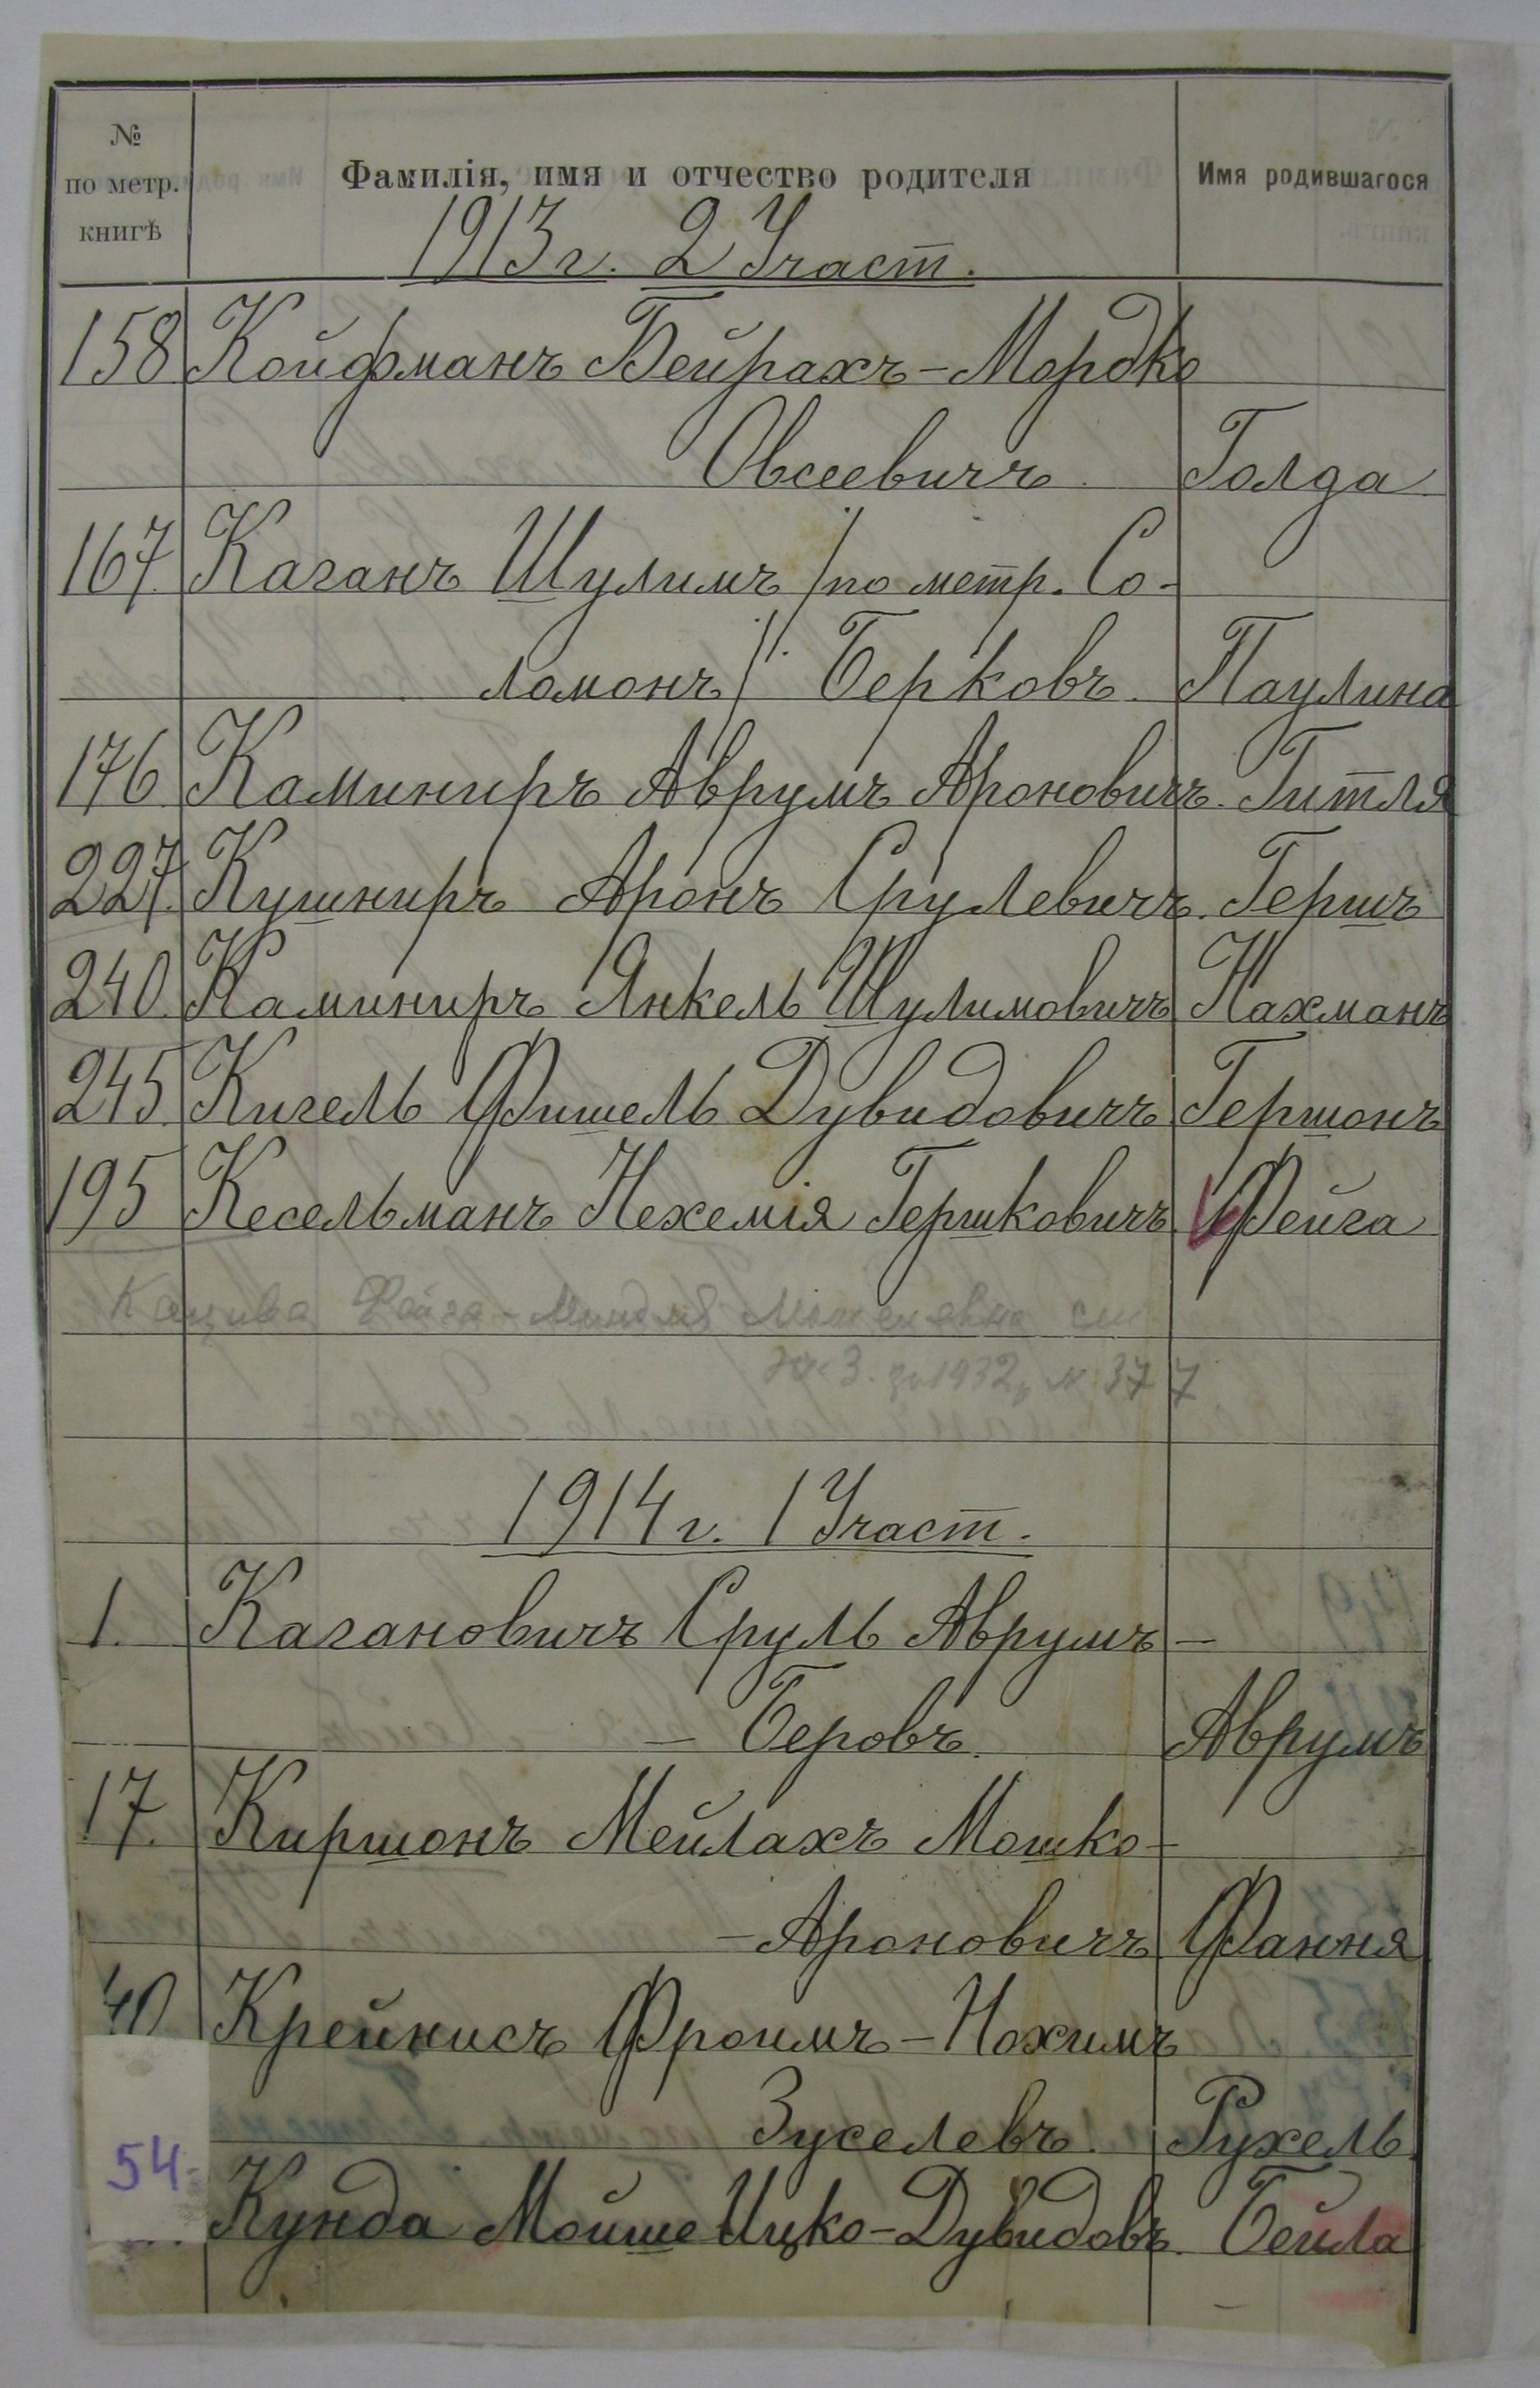 №
по метр.
книгѣ
Фамилія, имя и отчество родителя
Имя родившагося
1913 г. 2 Участ.
158 Койфманъ Бейрахъ-Мордко
Овсеевичъ Голда
167. Каганъ Шулимъ /по метр. Со-
ломонъ/ Берковъ. Паулина
176. Каминиръ Аврумъ Ароновичъ. Гитля
227. Кушниръ Аронъ Срулевичъ. Гершъ
240. Каминиръ Янкель Шулимовичъ Нахманъ
245. Кигель Фишель Дувидовичъ Гершонъ
195 Кесельманъ Нехемія Гершковичъ Фейга
Фейга-
1932 № 377
1914 г. 1 Участ.
1. Кагановичъ Сруль Аврумъ-
- Беровъ. Аврумъ
17. Киршонъ Мейлахъ Мошко-
-Ароновичъ. Фання
40 Крейнисъ Фроимъ-Нохимъ
Зуселевъ. Рухель.
54.
Кунда Мойше Ицко-Дувидовъ. Бейла